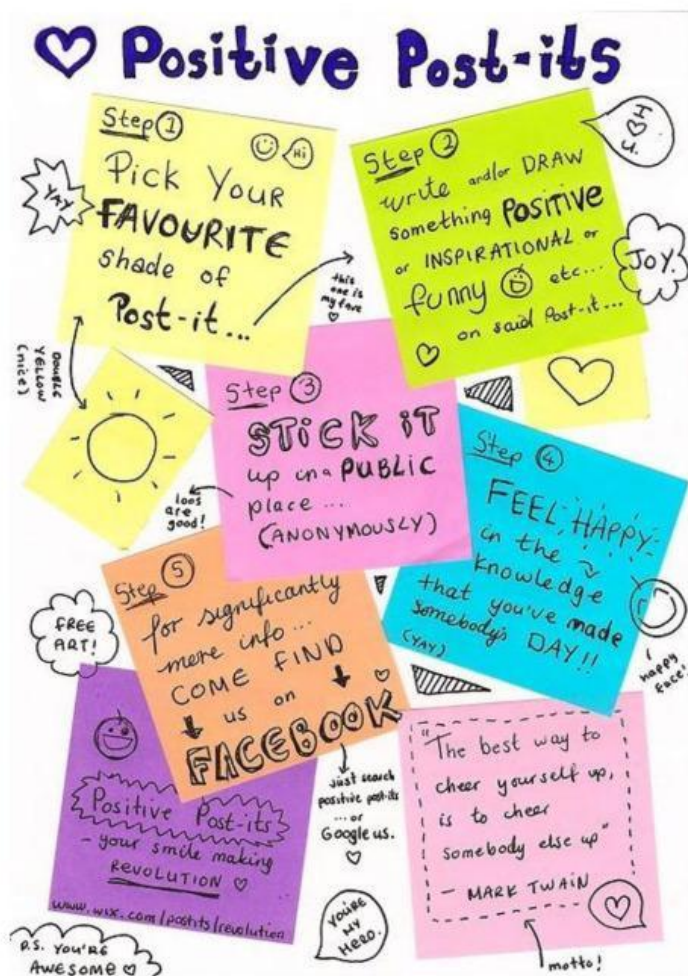 ♡ Positive Post-its
Step 1
Hi
Pick Your
FAVOURITE
shade of
Post-it...
YAY
this
one is
my fave
♡
DOUBLE
YELLOW
(nice)
Step 2
write and/or DRAW
something POSITIVE
or INSPIRATIONAL or
funny etc...
♡ on said Post-it...
I
♡
U.
JOY.
Step 3
STICK IT
up in a PUBLIC
place ...
(ANONYMOUSLY)
loos
are
good!
Step 4
FEEL HAPPY
in the
Knowledge
that you've made
somebody's DAY!!
(YAY)
happy
face!
Step 5
for significantly
more info...
COME FIND
us on
FACEBOOK
♡
FREE
ART!
just search
positive post-its
... or
Google us.
♡
Positive Post-its
- your smile making
REVOLUTION ♡
www.wix.com/postits/revolution
"The best way to
cheer yourself up,
is to cheer
somebody else up"
- MARK TWAIN
motto!
YOU'RE
MY
HERO.
P.S. YOU'RE
AWESOME ♡